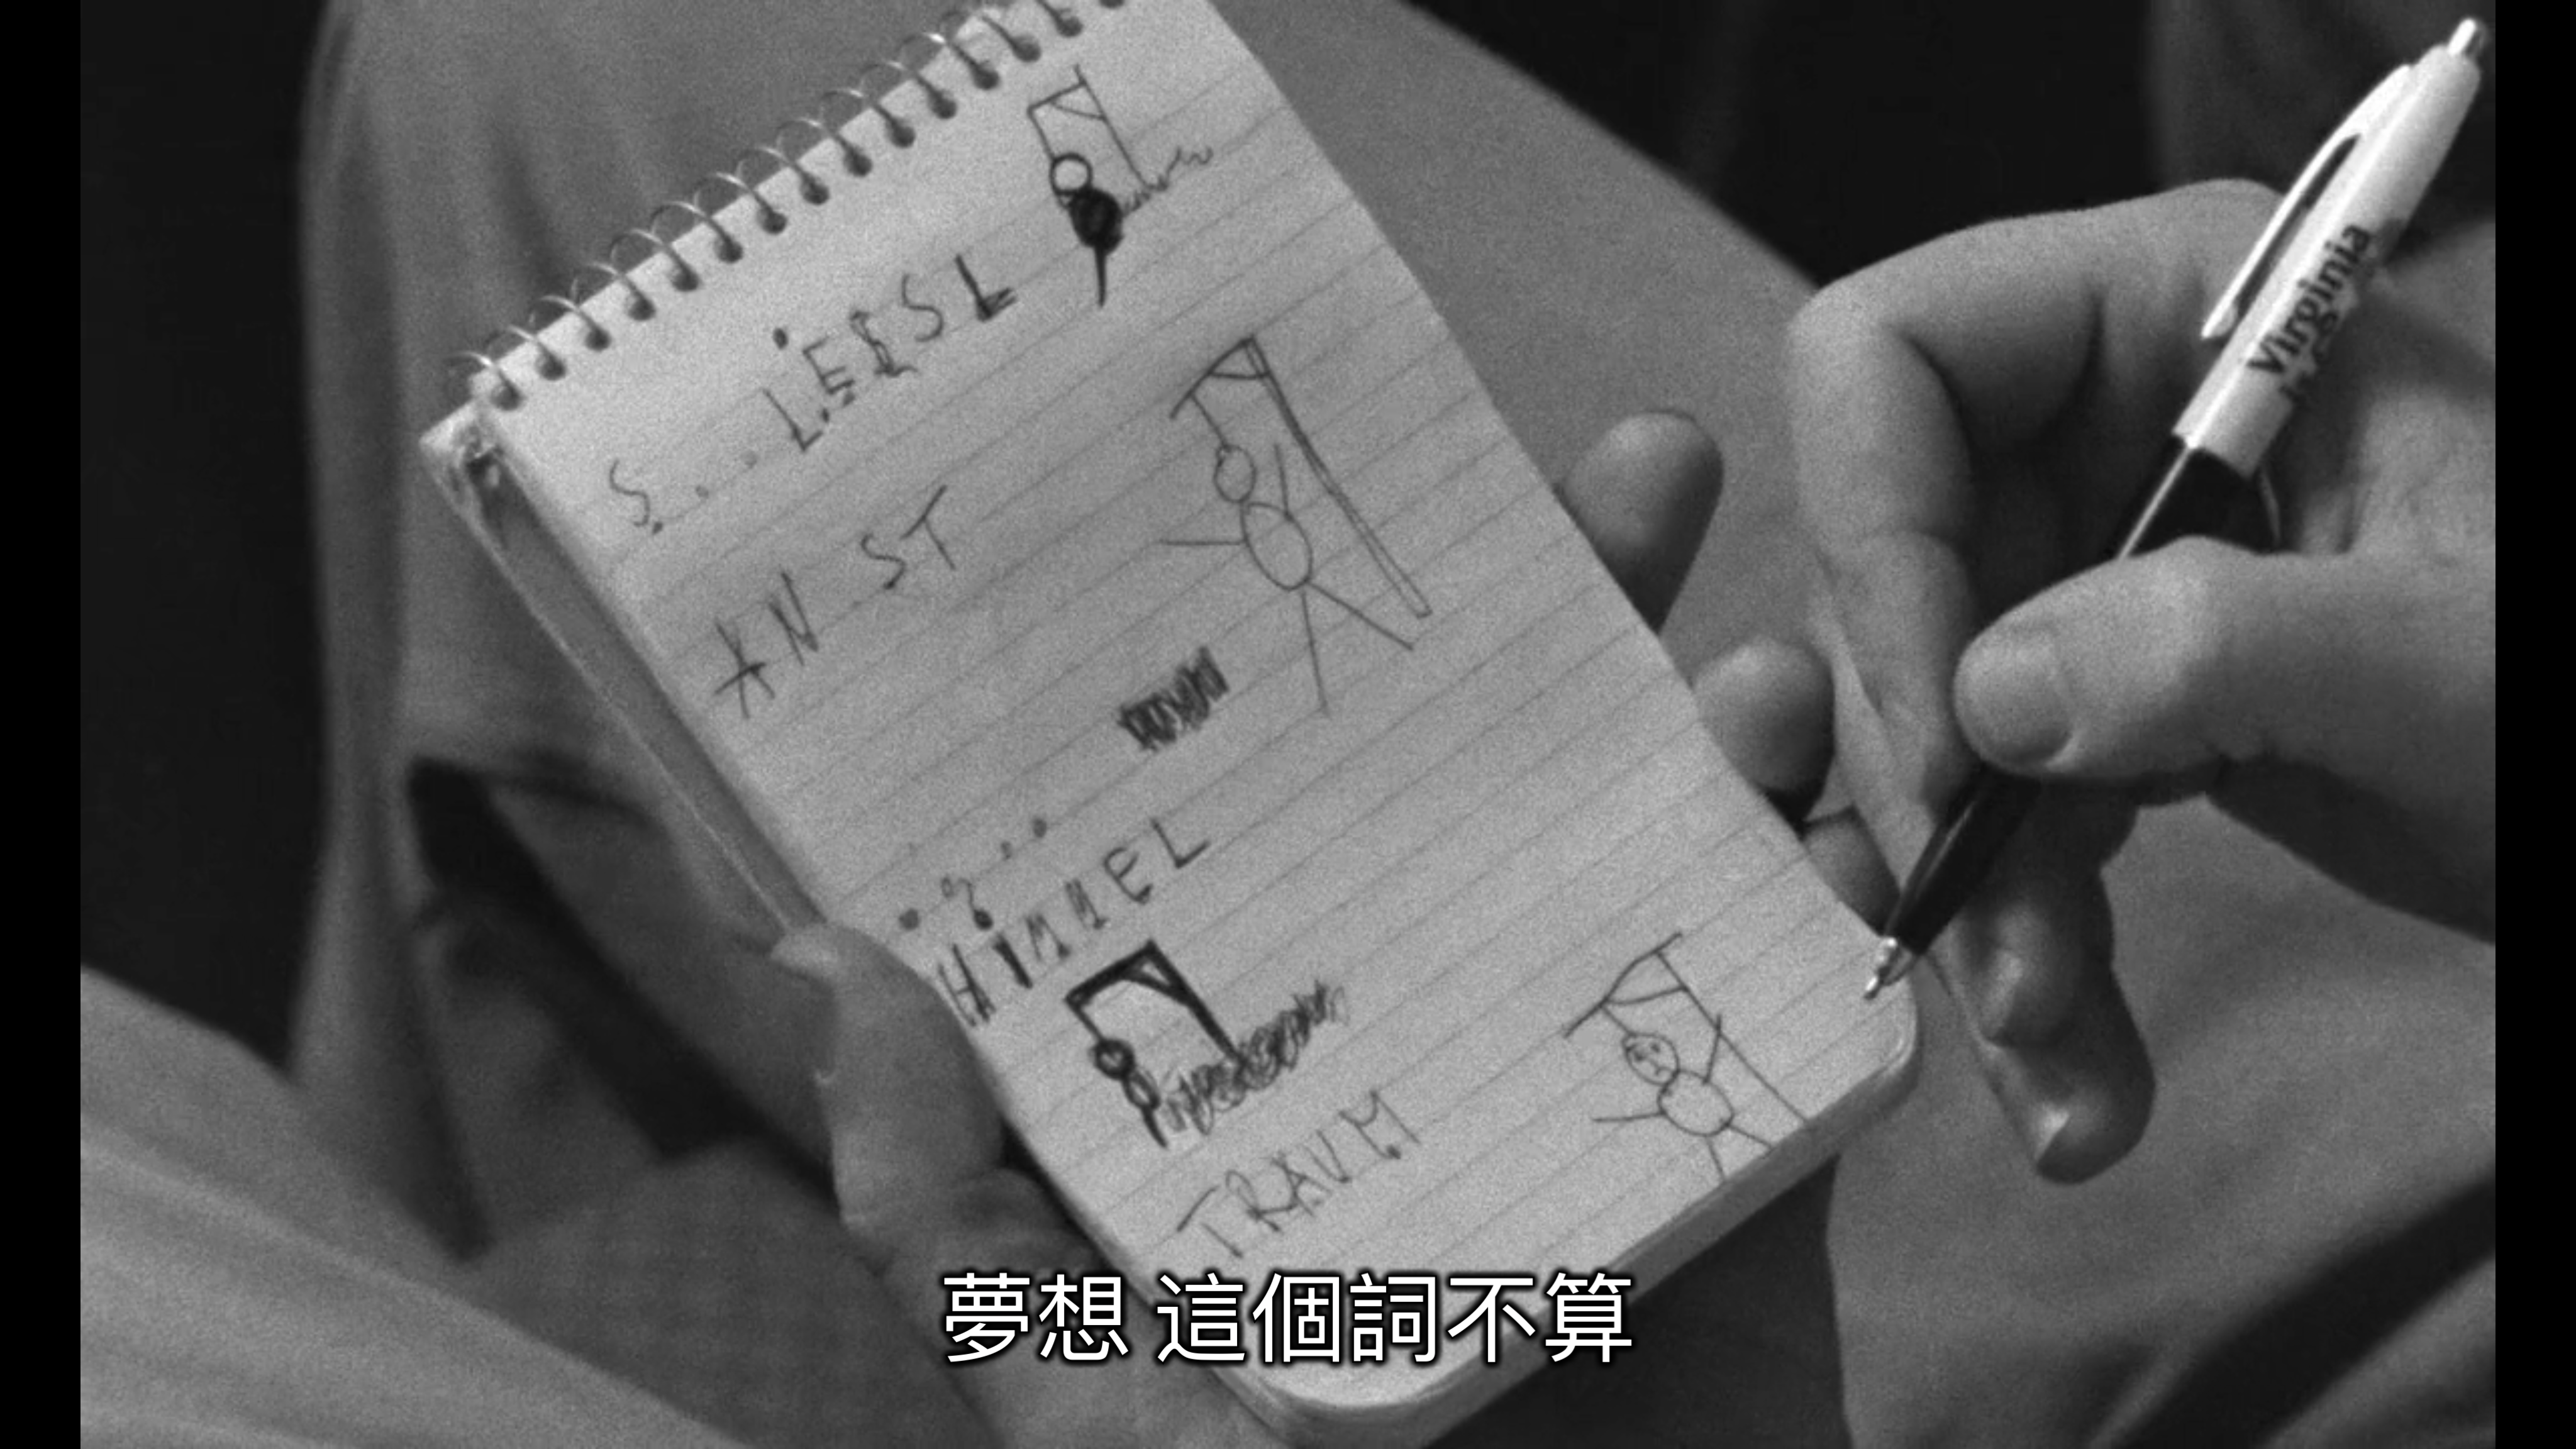 S....LEESL
AN ST
HIMMEL
TRAUM
Virginia
夢想 這個詞不算